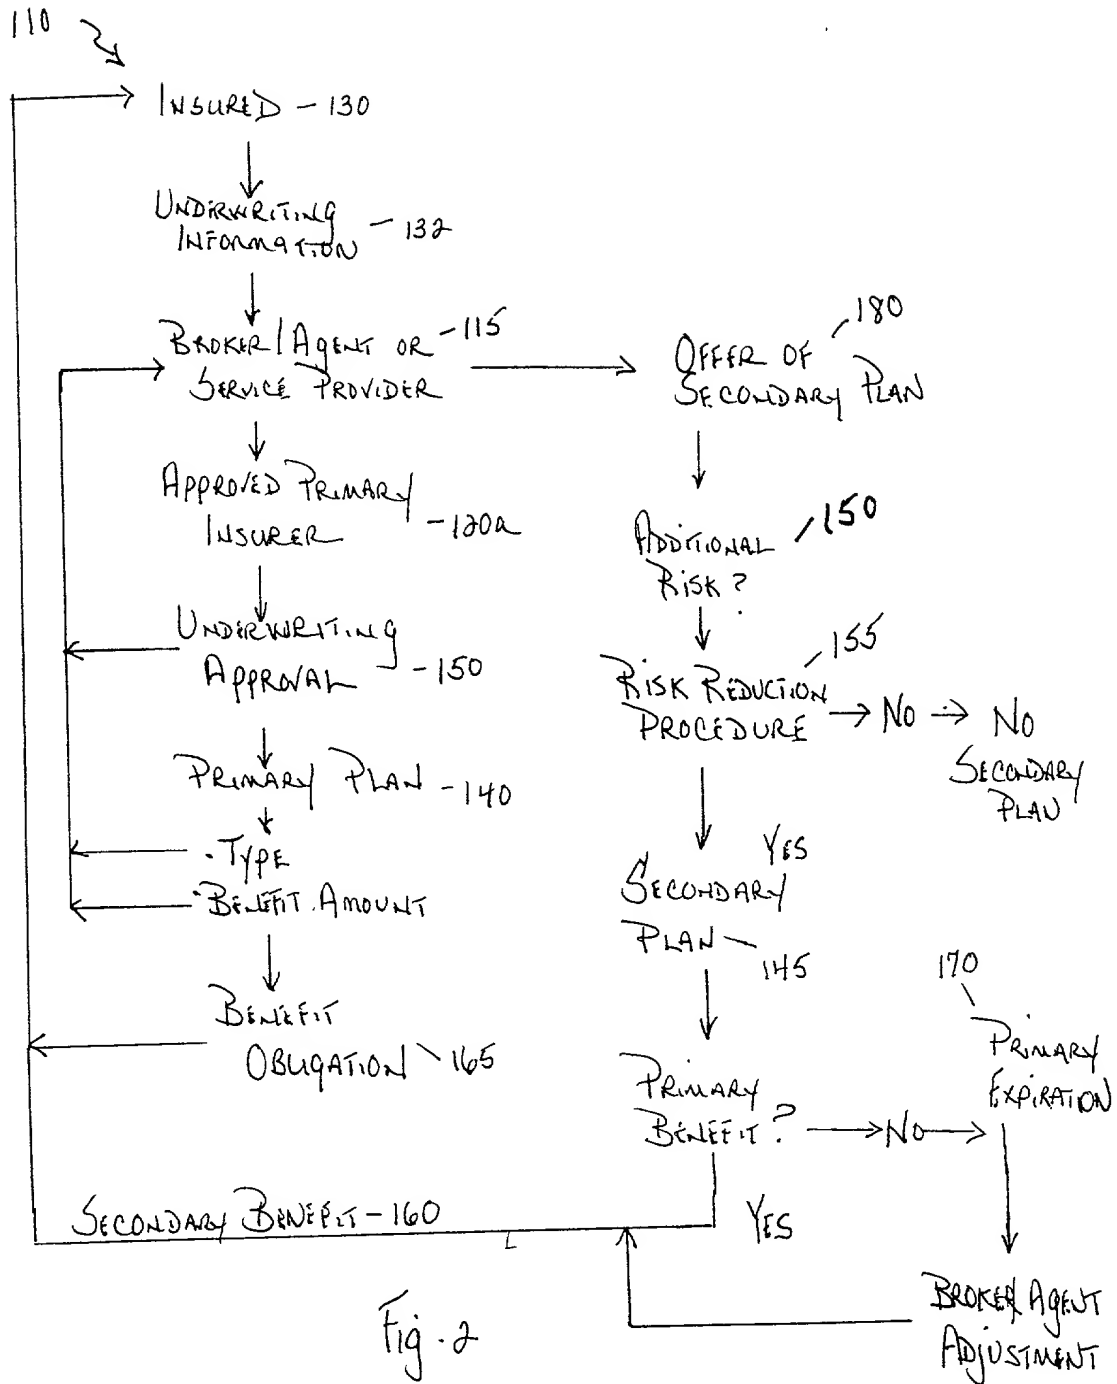 110
INSURED - 130
UNDERWRITING
INFORMATION - 132
BROKER/AGENT OR - 115
SERVICE PROVIDER
APPROVED PRIMARY
INSURER - 120a
UNDERWRITING
APPROVAL - 150
PRIMARY PLAN - 140
. TYPE
. BENEFIT AMOUNT
BENEFIT
OBLIGATION 165
180
OFFER OF
SECONDARY PLAN
150
ADDITIONAL
RISK?
155
RISK REDUCTION
PROCEDURE
NO
NO
SECONDARY
PLAN
YES
SECONDARY
PLAN
145
170
PRIMARY
EXPIRATION
PRIMARY
BENEFIT?
NO
YES
SECONDARY BENEFIT - 160
BROKER/AGENT
ADJUSTMENT
Fig. 2